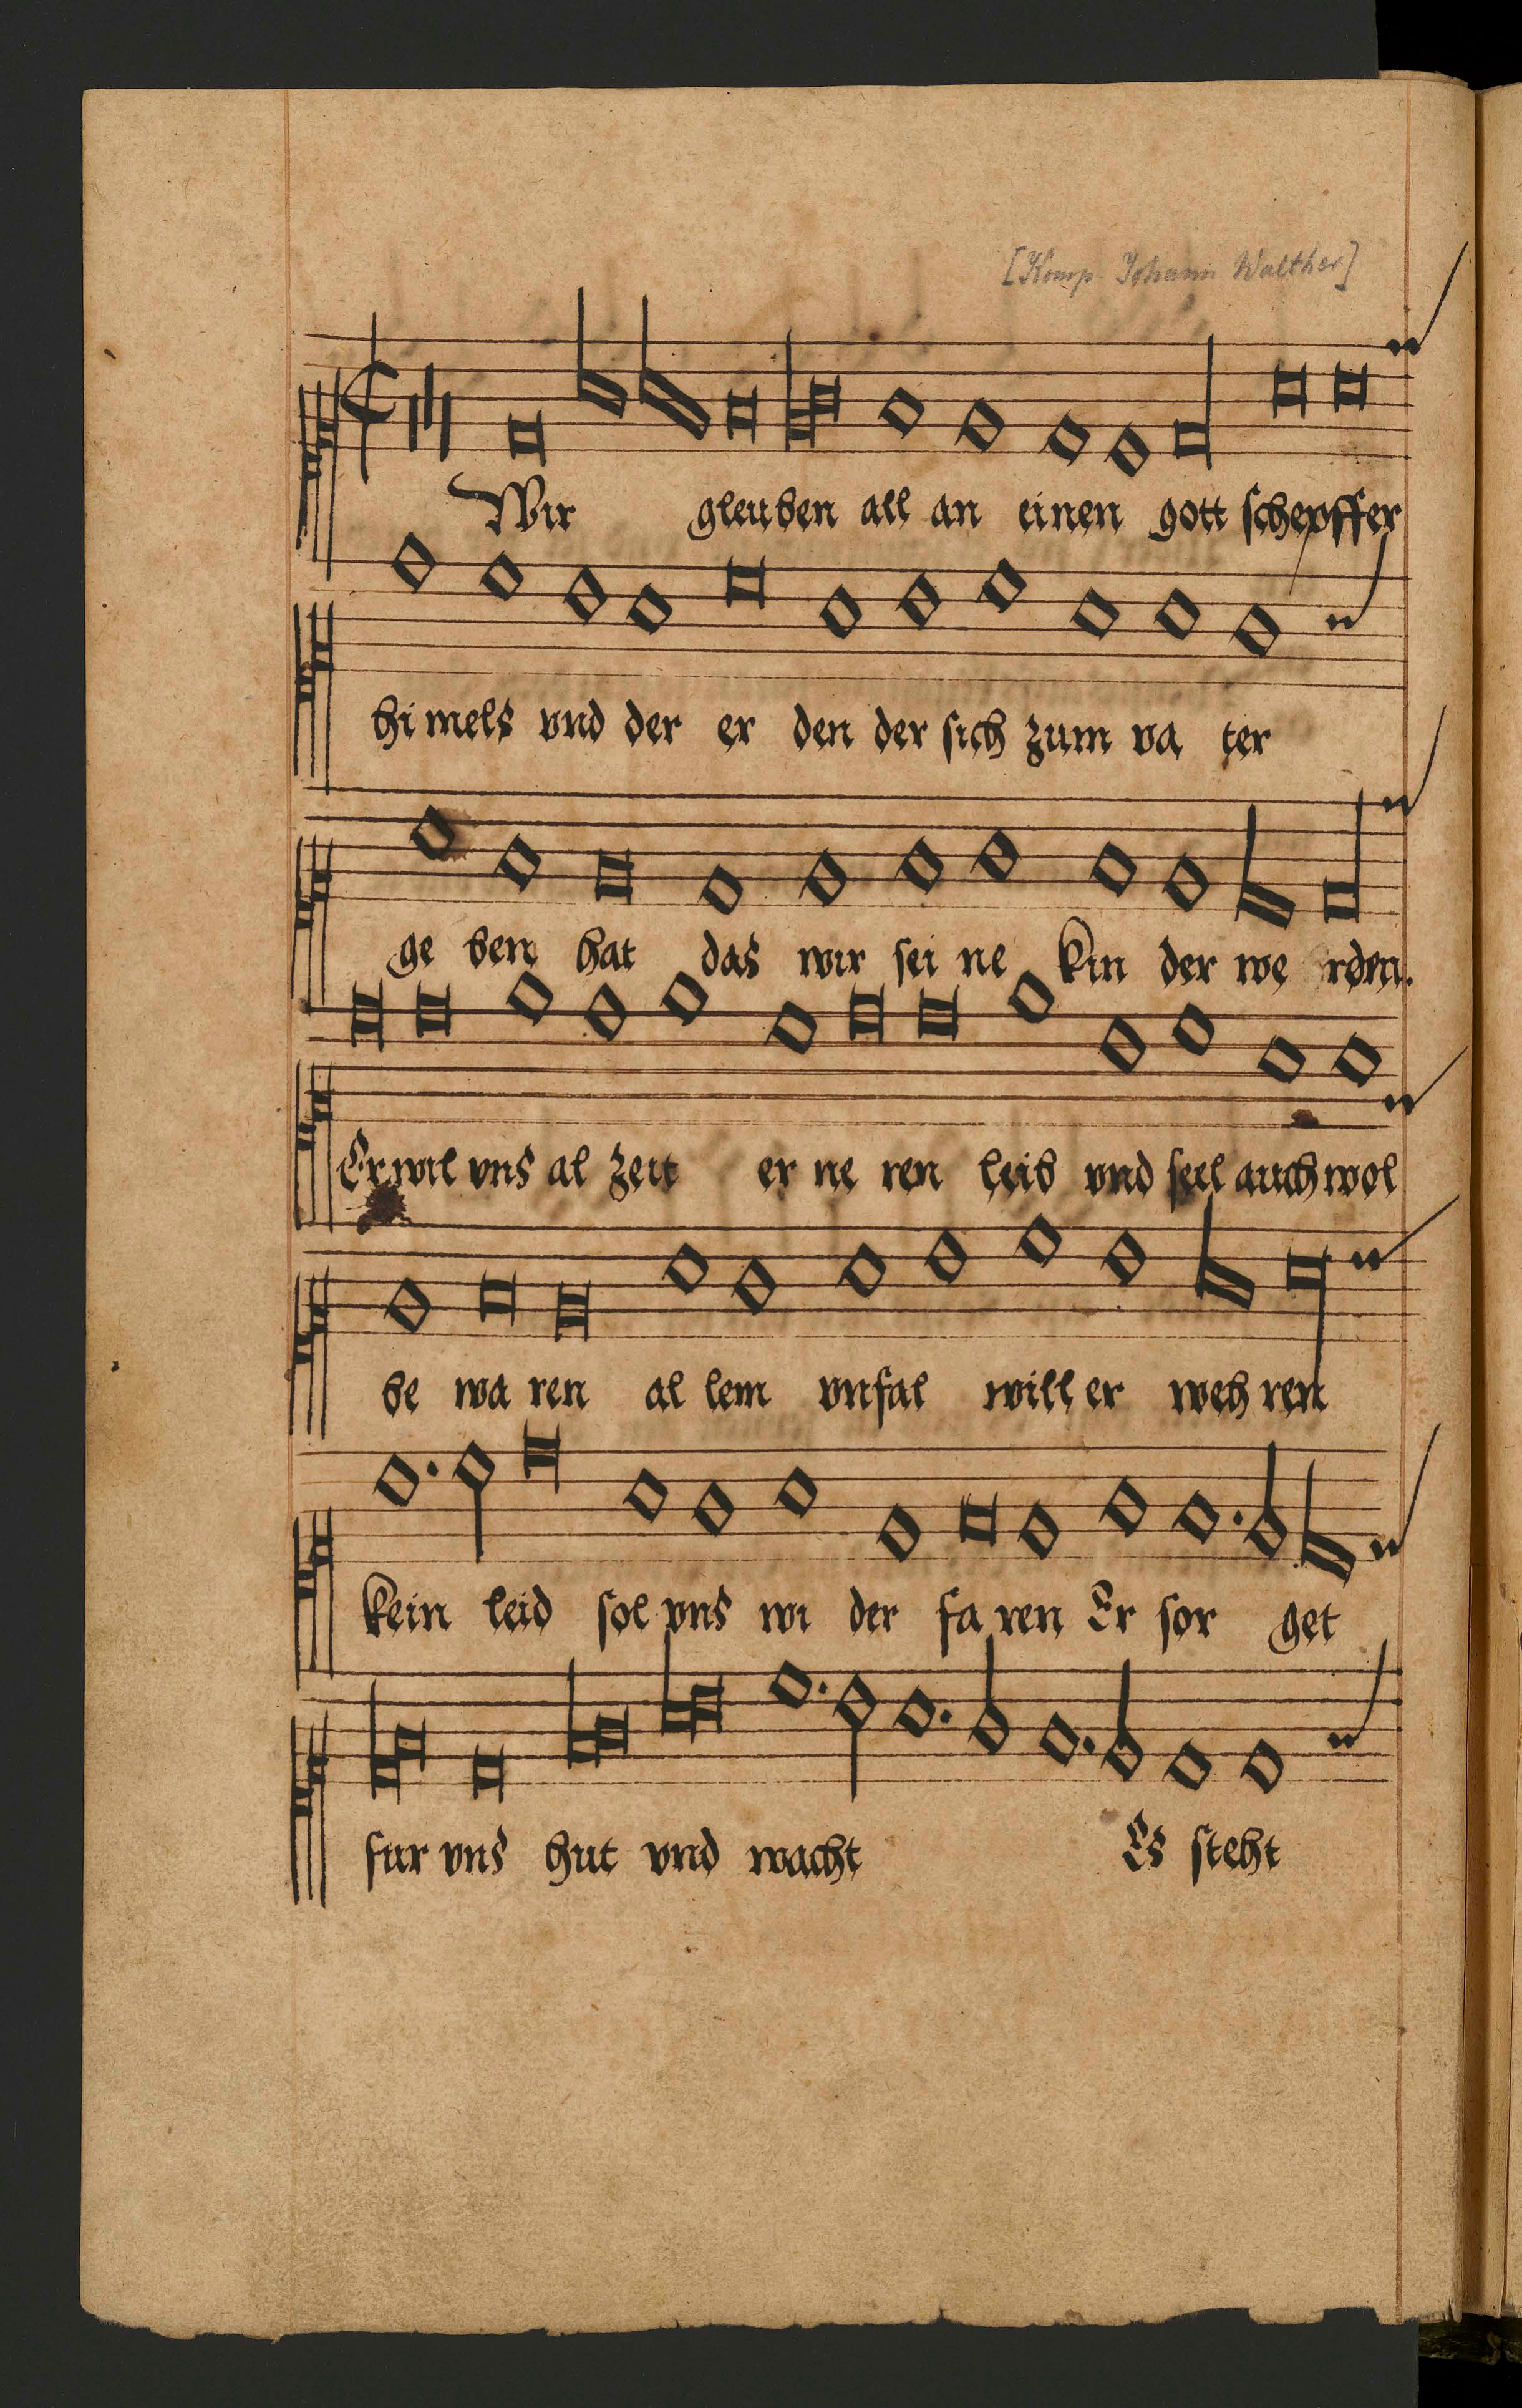 [Komp. Johann Walther]
Wir gleuben all an einen gott schepffer
himels vnd der er den der sich zum va ter
ge ben hat das wir sei ne kin der we rden.
Er wil vns al zeit er ne ren leib vnd seel auch wol
be wa ren al lem vnfal will er weh ren
kein leid sol vns wi der fa ren Er sor get
fur vns hut vnd wacht Es steht